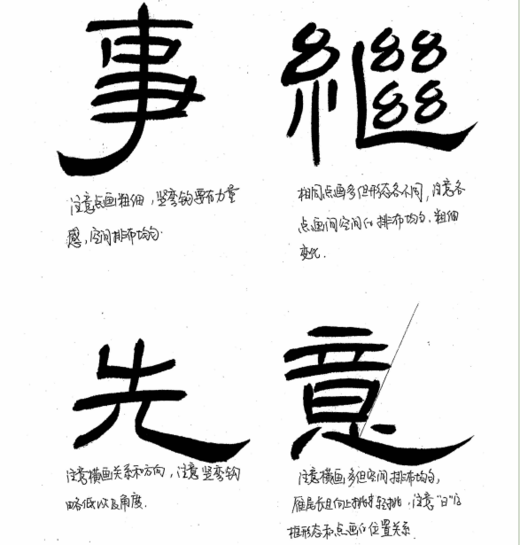 事
注意点画粗细，竖弯钩要有力量
感，空间排布均匀.
繼
相同点画多但形态各不同，注意各
点画间空间的排布均匀.粗细
变化.
先
注意横画关系和方向，注意竖弯钩
略低以及角度.
意
注意横画多但空间排布均匀，
雁尾长且向上挑时轻挑.注意“日”的
框形态和点画的位置关系.